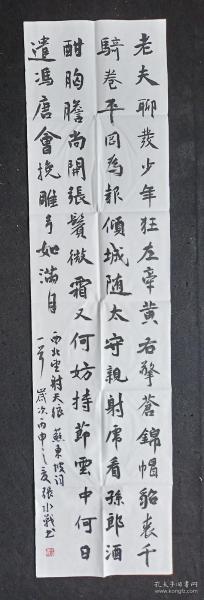 老夫聊發少年狂左牽黄右擎蒼錦帽貂裘千
騎卷平岡為報傾城随太守親射虎看孫郎酒
酣胸膽尚開張鬢微霜又何妨持節雲中何日
遣馮唐會挽雕弓如滿月
西北望射天狼 蘇東坡詞
一首 歲次丙申之夏張水戰書